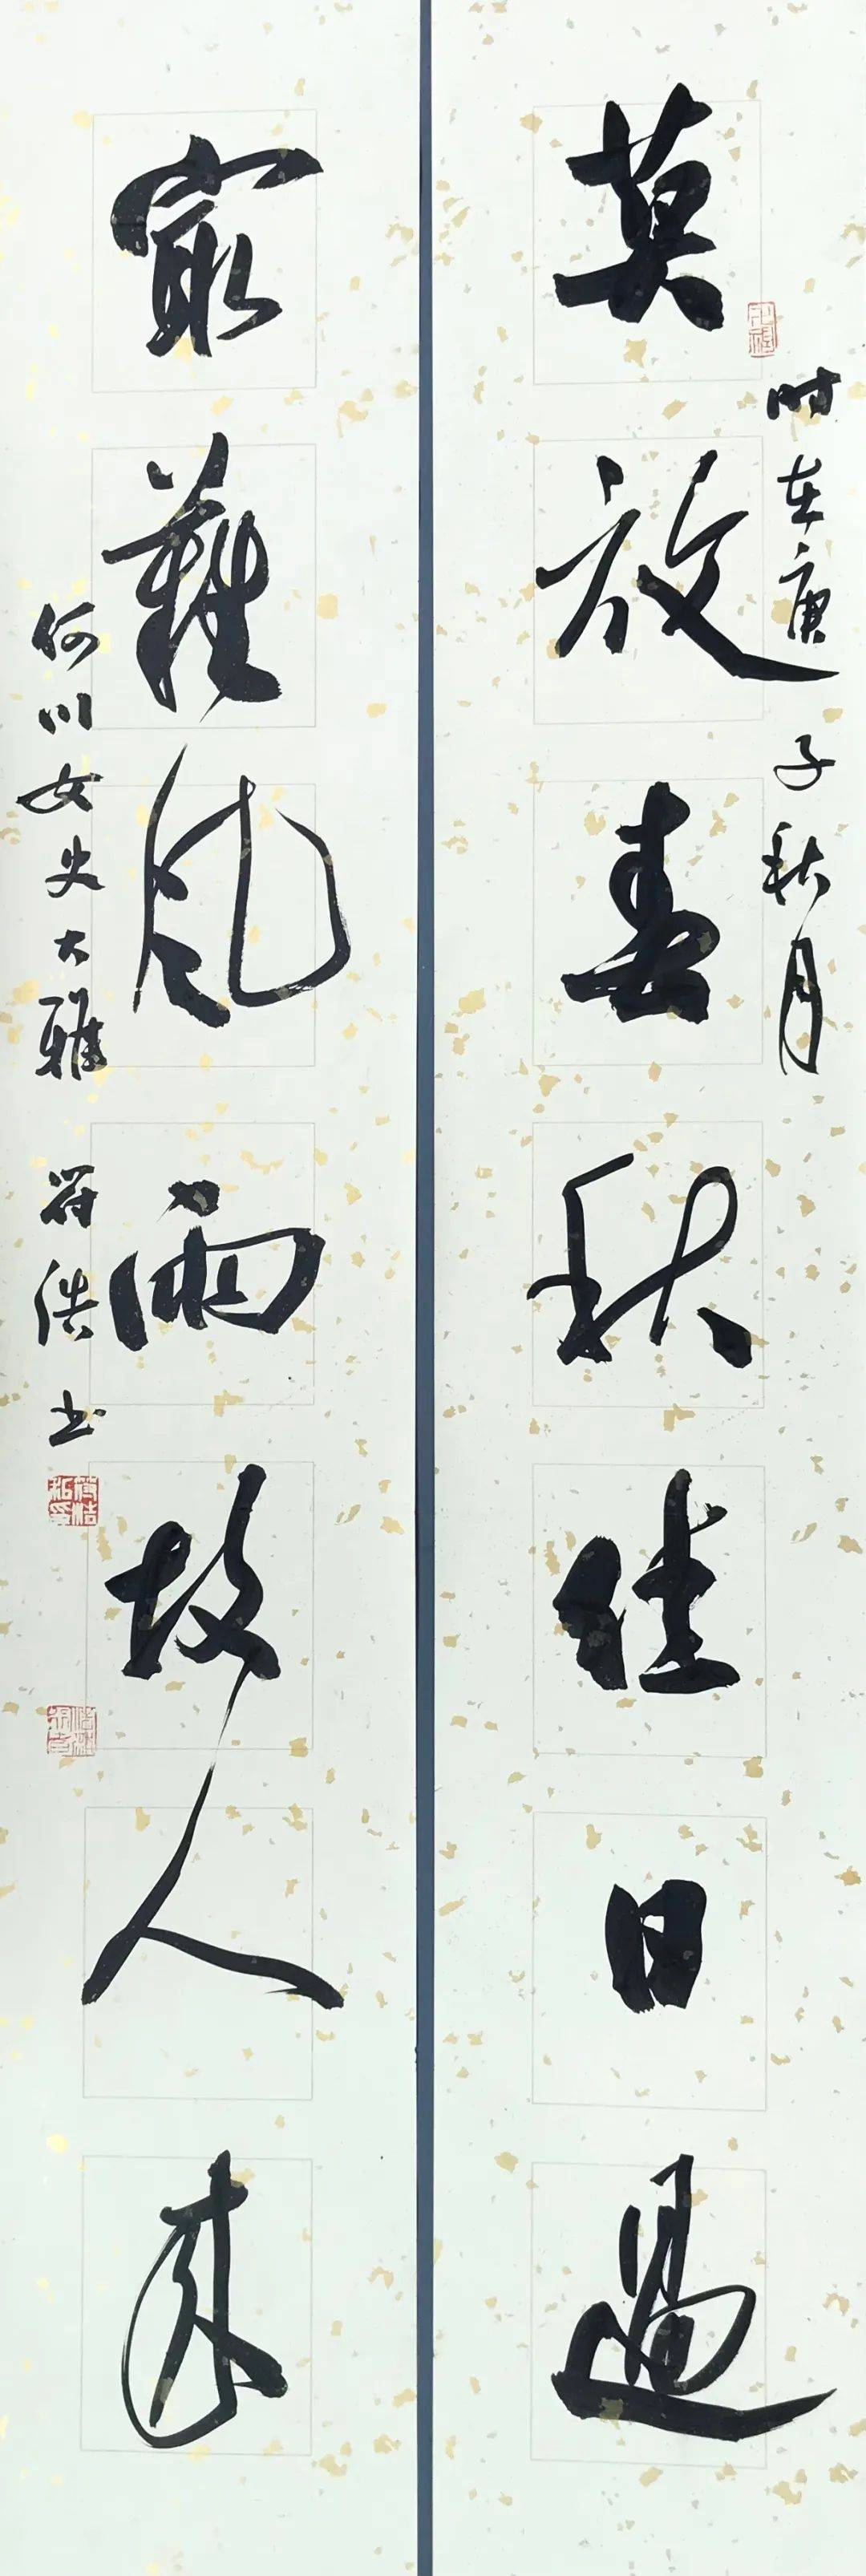 莫放春秋佳日過
時在庚子秋月
最難風雨故人來
何川女史大雅 符浩书